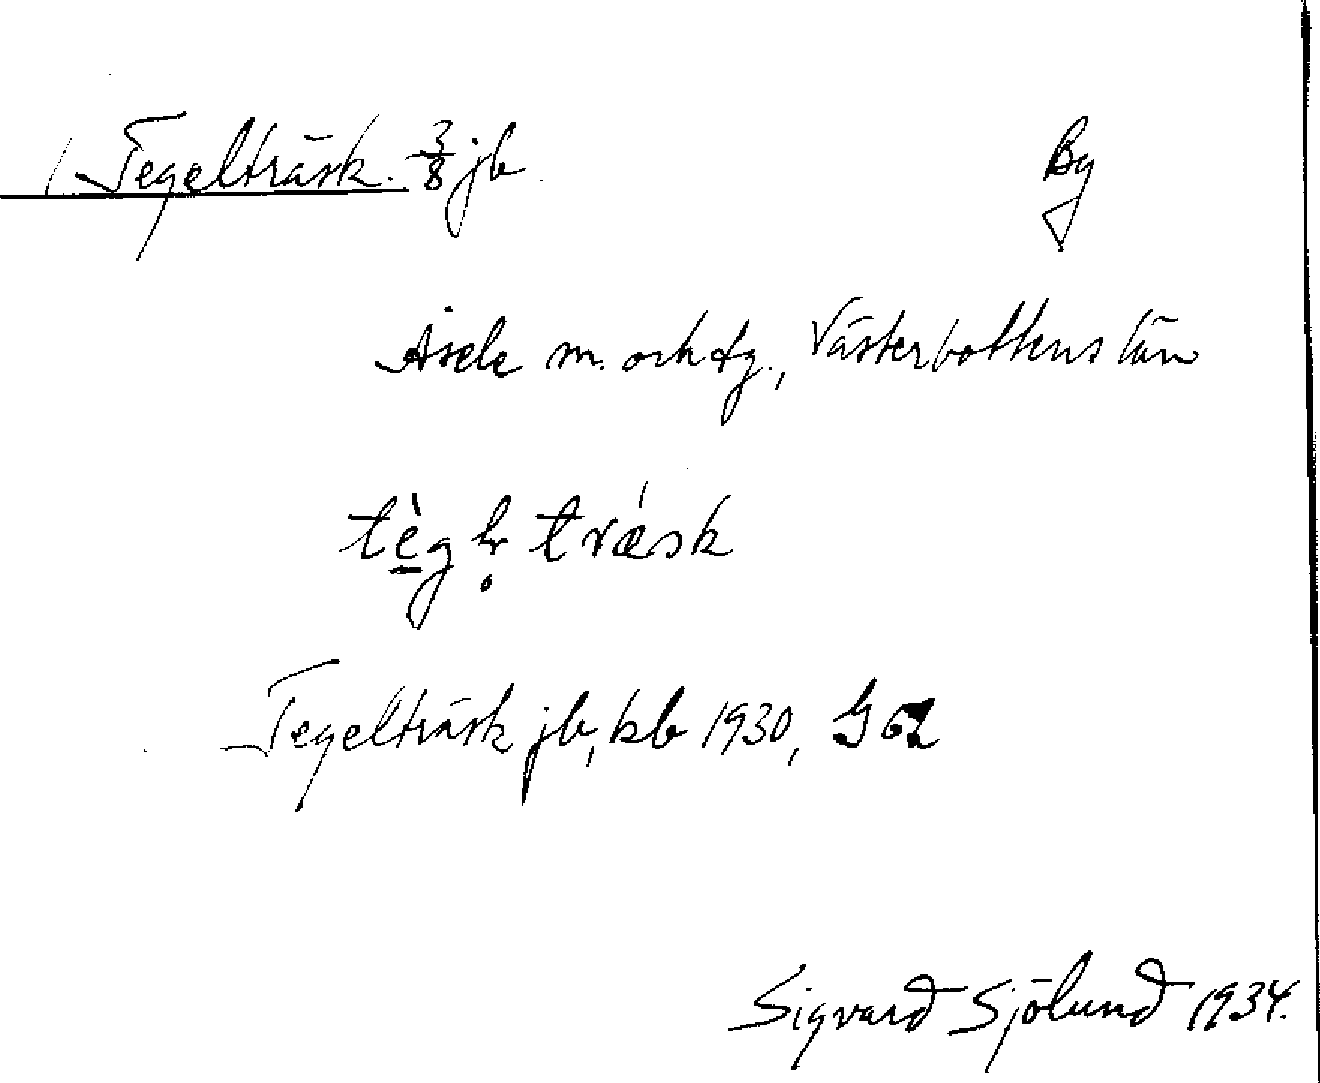 Tegelträsk. 3/8 jb By
Åsele sn. och tg., Västerbottens län
tègḷträ́sk
Tegelträsk jb, kb 1930, G
Sigvard Sjölund 1934.